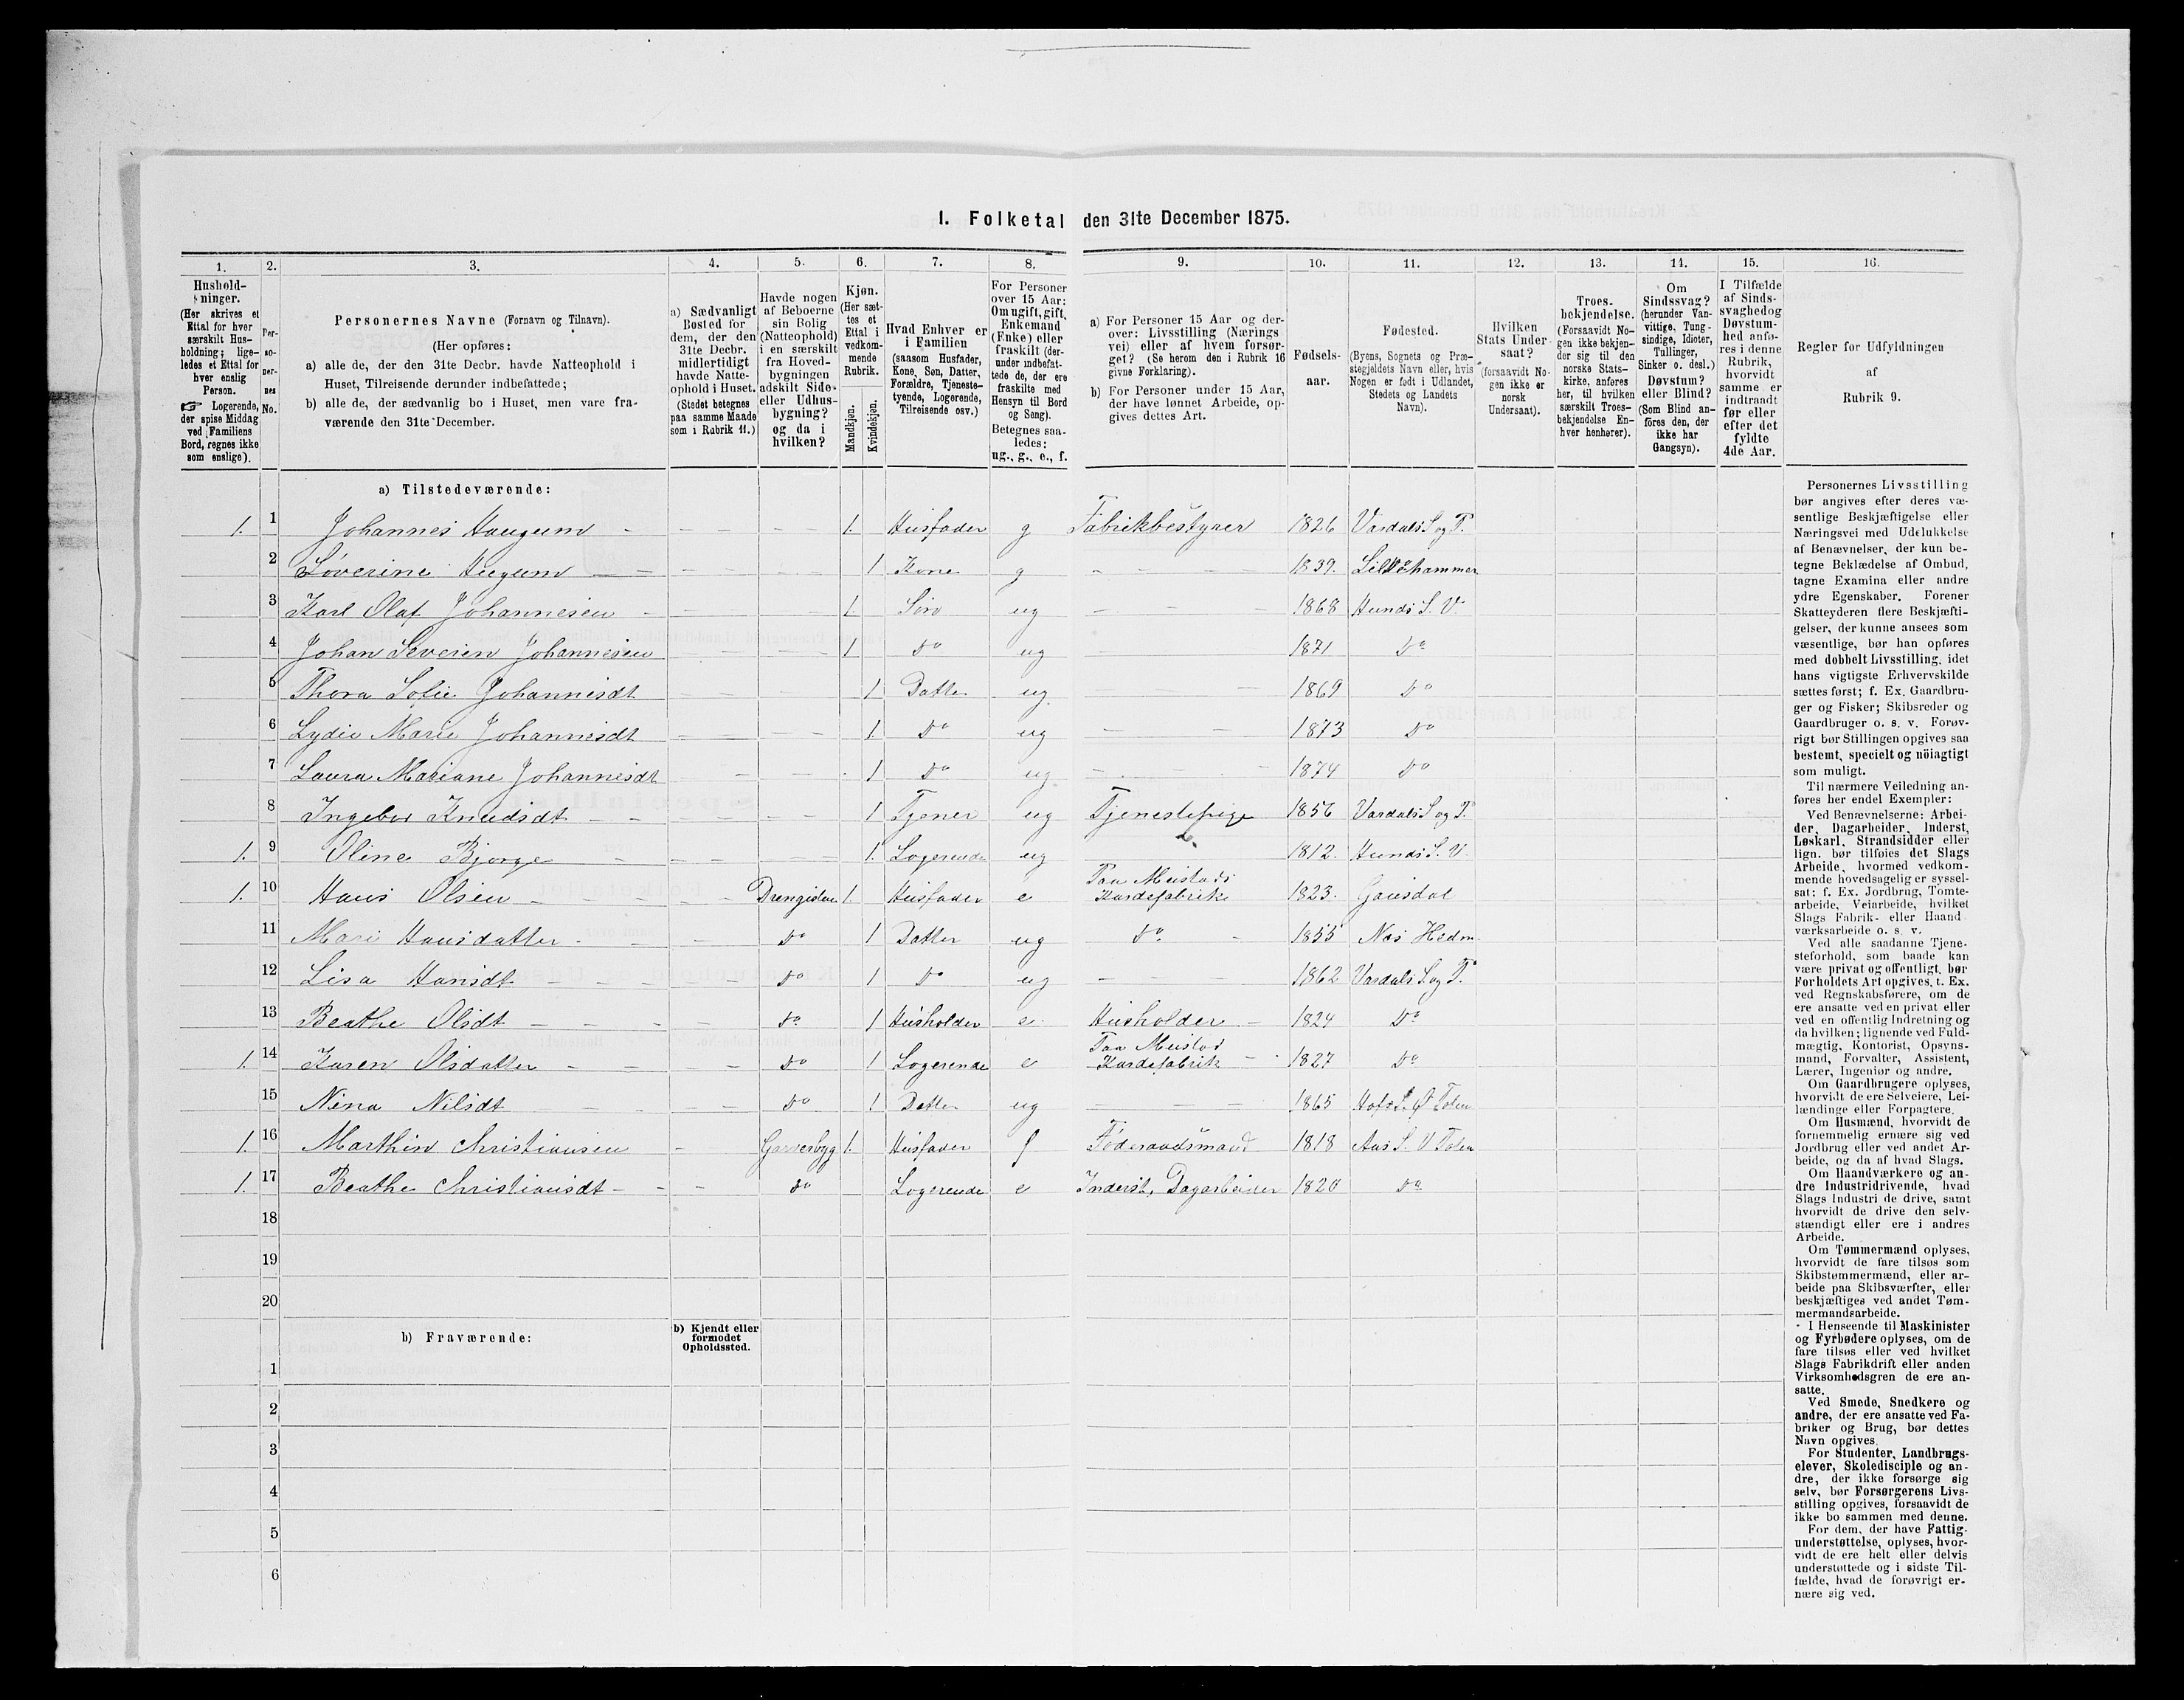 1. Folketal den 31te December 1875.
1. 2. 3. 4. 5. 6. 7. 8. 9. 10. 11. 12. 13. 14. 15. 16.
Hushold-
ninger.
(Her skrives et
Ettal for hver
særskilt Hus-
holdning; lige-
ledes et Ettal for
hver enslig
Person.
☞ Logerende,
der spise Middag
ved Familiens
Bord, regnes ikke
som enslige).
Per-
so-
ner-
nes
No.
Personernes Navne (Fornavn og Tilnavn).
(Her opføres:
a) alle de, der den 31te Decbr. havde Natteophold i
Huset, Tilreisende derunder indbefattede;
b) alle de, der sædvanlig bo i Huset, men vare fra-
værende den 31te December.
a) Sædvanligt
Bosted for
dem, der den
31te Decbr.
midlertidigt
havde Natte-
ophold i Huset.
(Stedet betegnes
paa samme Maade
som i Rubrik 11.)
Havde nogen
af Beboerne
sin Bolig
(Natteophold)
i en særskilt
fra Hoved-
bygningen
adskilt Side-
eller Udhus-
bygning?
og da i
hvilken?
Kjøn.
(Her sæt-
tes et
Ettal i
vedkom-
mende
Rubrik.
Mandkjøn.
Kvindekjøn.
Hvad Enhver er
i Familien
(saasom Husfader,
Kone, Søn, Datter,
Forældre, Tjeneste-
tyende, Logerende,
Tilreisende osv.)
For Personer
over 15 Aar:
Om ugift, gift,
Enkemand
(Enke) eller
fraskilt (der-
under indbefat-
tede de, der ere
fraskilte med
Hensyn til Bord
og Seng).
Betegnes saa-
ledes:
ug., g., e., f.
a) For Personer 15 Aar og der-
over: Livsstilling (Nærings
vei) eller af hvem forsør-
get? (Se herom den i Rubrik 16
givne Forklaring).
b) For Personer under 15 Aar,
der have lønnet Arbeide, op-
gives dettes Art.
Fødsels-
aar.
Fødested.
(Byens, Sognets og Præ-
stegjeldets Navn eller, hvis
Nogen er født i Udlandet,
Stedets og Landets
Navn).
Hvilken
Stats Under-
saat?
(forsaavidt No-
gen ikke er
norsk
Undersaat).
Troes-
bekjendelse.
(Forsaavidt No-
gen ikke bekjen-
der sig til den
norske Stats-
kirke, anføres
her, til hvilken
særskilt Troes-
bekjendelse En-
hver henhører).
Om
Sindssvag?
(herunder Van-
vittige, Tung-
sindige, Idioter,
Tullinger,
Sinker o. desl.)
Døvstum?
eller Blind?
(Som Blind an-
føres den, der
ikke har
Gangsyn).
I Tilfælde
af Sinds-
svaghed og
Døvstum-
hed anfø-
res i denne
Rubrik,
hvorvidt
samme er
indtraadt
før eller
efter det
fyldte
4de Aar.
Regler for Udfyldningen
af
Rubrik 9.
a) Tilstedeværende:
1. 1 Johannes Haugum 1. Husfader g Fabrikbestyrer 1826 Vardals S og P.
2 Söverine Hugum 1 Kone g 1839. Lillehammer
3 Karl Olaf Johannesen 1. Sön ug 1868 Hunds S. V.
4 Johan Severin Johannesen 1 do ug 1871 do
5 Thora Sofie Johannesdt 1 Datter ug. 1869 do
6 Lydie Marie Johannesdt 1. do ug 1873 do
7 Laura Mariane Johannesdt 1 do ug 1874 do
8 Ingebor Knudsdt 1 Tjener ug Tjenestepige 1856 Vardals S og P.
1. 9 Oline Bjorge 1. Logerende ug 1812. Hunds S. V.
1. 10 Hans Olsen Drengistue 1. Husfader e Paa Mustads Kardefabrik 1823. Gausdal
11 Mari Hansdatter do 1 Datter ug do. 1855 Næs Hedm.
12 Lisa Hansdt do 1 do ug 1862 Vardals S. og P.
13 Beathe Olsdt do. 1 Husholder e Husholder 1824 do
1. 14 Karen Olsdatter do 1 Logerende e Paa Mustad Kardefabrik 1827 do
15 Nina Nilsdt do 1 Datter ug 1865 Hofs S. Ø Toten
1. 16 Marthin Christiansen 1. Husfader f Föderaadsmand 1818 Aas S. V Toten
1. 17 Beathe Christiansdt do Logerende e Inderst, Dagarbeider 1820 do
18
19
20
b) Fraværende:
b) Kjendt eller
formodet
Opholdssted.
1
2
3
4
5
6
Personernes Livsstilling
bør angives efter deres væ-
sentlige Beskjæftigelse eller
Næringsvei med Udelukkelse
af Benævnelser, der kun be-
tegne Beklædelse af Ombud,
tagne Examina eller andre
ydre Egenskaber. Forener
Skatteyderen flere Beskjæfti-
gelser, der kunne ansees som
væsentlige, bør han opføres
med dobbelt Livsstilling, idet
hans vigtigste Erhvervskilde
sættes først; f. Ex. Gaardbru-
ger og Fisker; Skibsreder og
Gaardbruger o. s. v. Forøv-
rigt bør Stillingen opgives saa
bestemt, specielt og nöiagtigt
som muligt.
Til nærmere Veiledning an-
føres her endel Exempler:
Ved Benævnelserne: Arbei-
der, Dagarbeider, Inderst,
Løskarl, Strandsidder eller
lign. bør tilføies det Slags
Arbeide, hvormed vedkom-
mende hovedsagelig er syssel-
sat; f. Ex. Jordbrug, Tomte-
arbeide, Veiarbeide, hvilket
Slags Fabrik- eller Haand-
værksarbeide o. s. v.
Ved alle saadanne Tjene-
steforhold, som baade kan
være privat og offentligt, bør
Forholdets Art opgives, t. Ex.
ved Regnskabsførere, om de
ere ansatte ved en privat eller
ved en offentlig Indretning og
da hvilken; lignende ved Fuld-
mægtig, Kontorist, Opsyns-
mand, Forvalter, Assistent,
Lærer, Ingeniør og andre.
Om Gaardbrugere oplyses,
hvorvidt de ere Selveiere, Lei-
lændinge eller Forpagtere.
Om Husmænd, hvorvidt de
fornemmelig ernære sig ved
Jordbrug eller ved andet Ar-
beide, og da af hvad Slags.
Om Haandværkere og an-
dre Industridrivende, hvad
Slags Industri de drive, samt
hvorvidt de drive den selv-
stændigt eller ere i andres
Arbeide.
Om Tømmermænd oplyses,
hvorvidt de fare tilsøs som
Skibstømmermænd, eller ar-
beide paa Skibsværfter, eller
beskjæftiges ved andet Tøm-
mermandsarbeide.
I Henseende til Maskinister
og Fyrbødere oplyses, om de
fare tilsøs eller ved hvilket
Slags Fabrikdrift eller anden
Virksomhedsgren de ere an-
satte.
Ved Smede, Snedkere og
andre, der ere ansatte ved Fa-
briker og Brug, bør dettes
Navn opgives.
For Studenter, Landbrugs-
elever, Skoledisciple og an-
dre, der ikke forsørge sig
selv, bør Forsørgerens Livs-
stilling opgives, forsaavidt de
ikke bo sammen med denne.
For dem, der have Fattig-
understøttelse, oplyses, hvor-
vidt de ere helt eller delvis
understøttede og i sidste Til-
fælde, hvad de forøvrigt er-
nære sig ved.